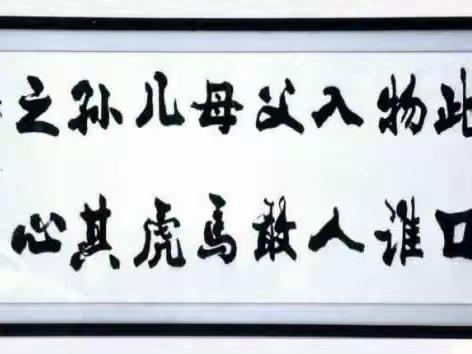 此物入父母儿孙之
口谁人敢馬虎其心